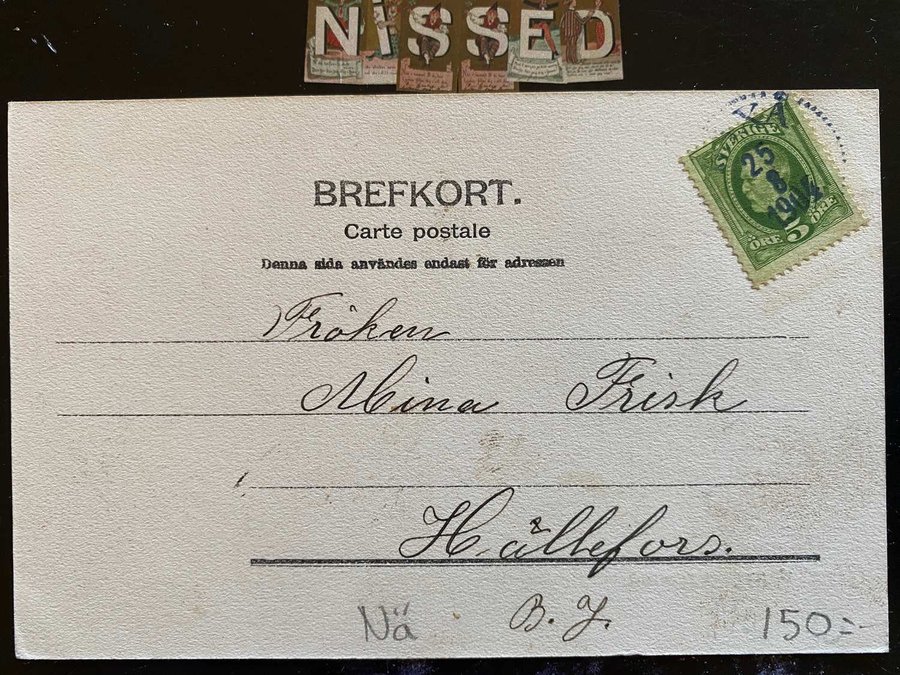 NiSSED
BREFKORT.
Carte postale
Denna sida användes endast för adressen
SVERIGE
25
8
1904
5
ÖRE ÖRE
Fröken
Mina Frisk
Hällefors.
B. J.
Nä
150:-